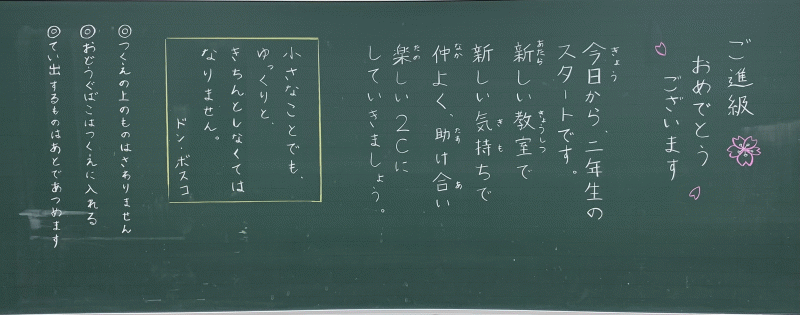 ご進級
おめでとう
ございます
今日から、二年生の
スタートです。
新しい教室で
新しい気持ちで
仲よく、助け合い
楽しい2Cに
していきましょう。
小さなことでも、
ゆっくりと、
きちんとしなくては
なりません。
ドン・ボスコ
◎つくえの上のものはさわりません
◎おどうぐばこはつくえに入れる
◎てい出するものはあとであつめます